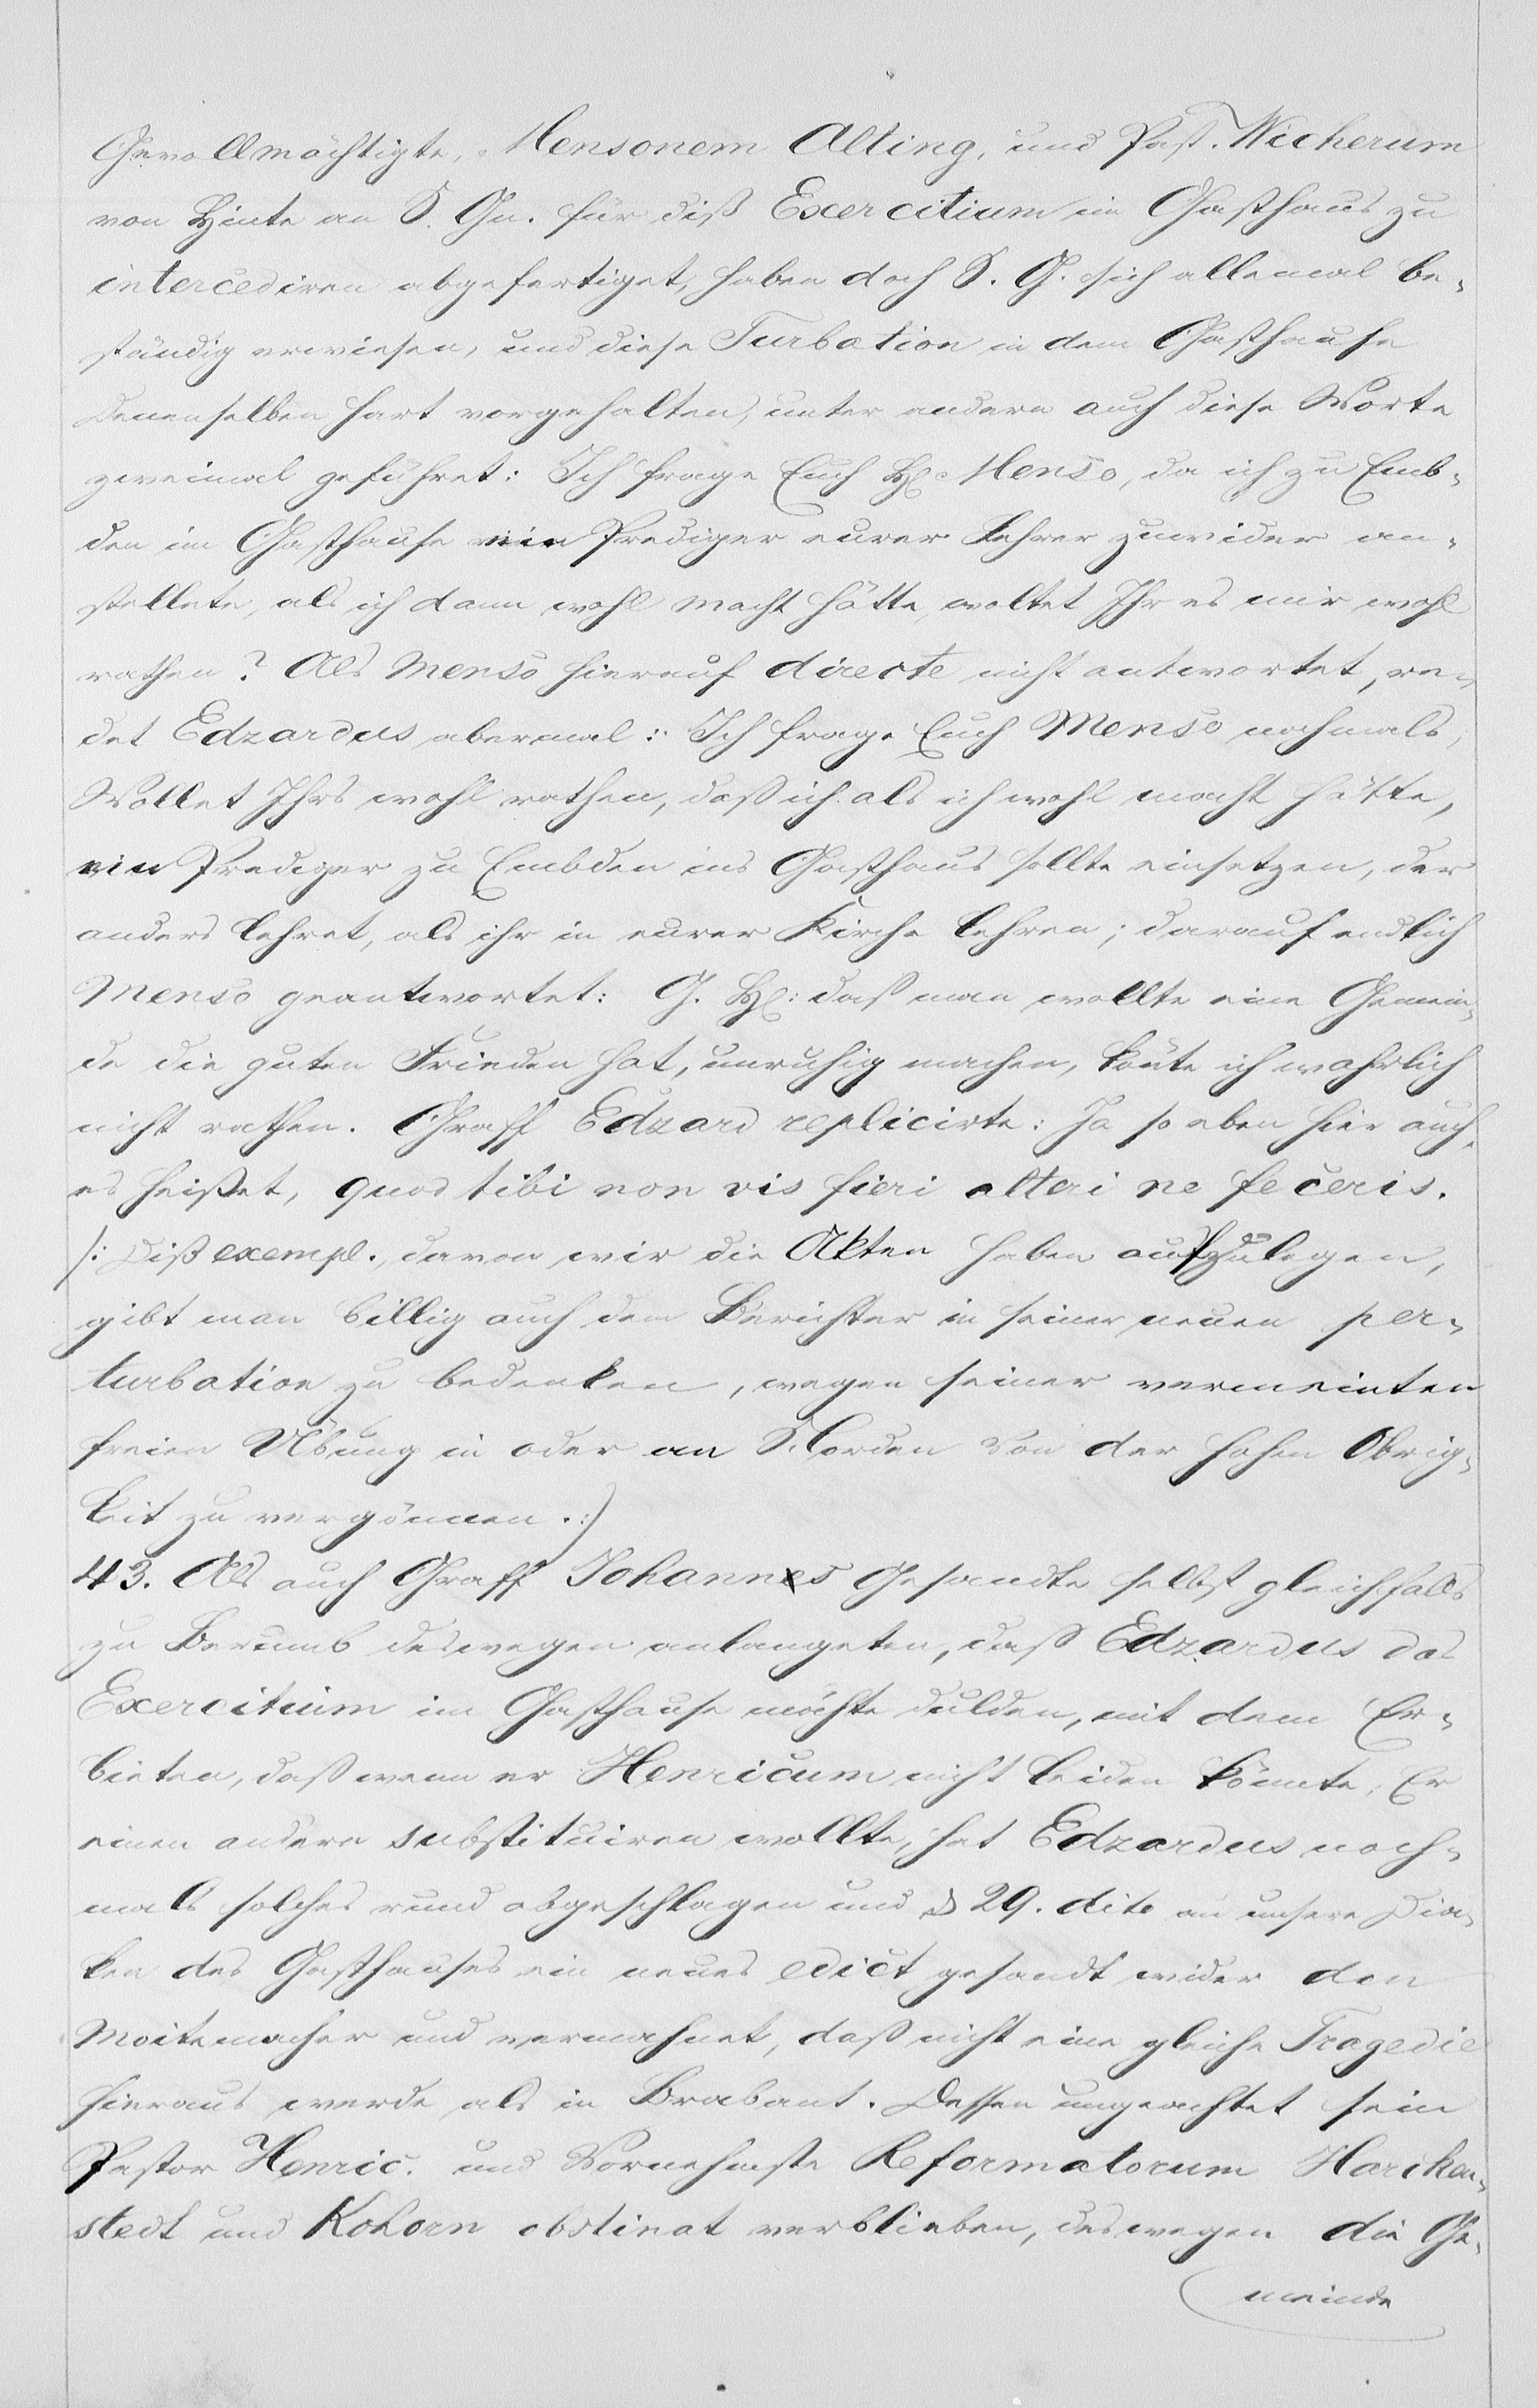 Gevollmächtigte, Mensonem Alting, und Past. Wicherum
von Hinte an S. Gn. für diß Exercitium im Gasthaus zu
intercediren abgefertiget, haben doch S. G. sich allemal be-
ständig erwiesen, und diese Turbation in dem Gasthause
denenselben hart vorgehalten, unter andern auch diese Worte
zweimal geführet: Ich frage Euch H. Menso, da ich zu Emb-
den im Gasthause ein Prediger eurer Lehrer zuwider an-
stellete, als ich dann wohl macht hätte, woltet Ihr es mir wohl
rathen? Als Menso hierauf directe nicht antwortet, re-
det Edzardus abermal: Ich frage Euch Menso nochmals,
Wollet Ihrs wohl rathen, daß ich als ich wohl macht hätte,
ein Prediger zu Embden ins Gasthaus sollte einsetzen, der
anders lehret, als ihr in eurer Kirche lehren; darauf endlich
Menso geantwortet: G. H: daß man wollte eine Gemein-
de die guten Frieden hat, unruhig machen, könte ich wahrlich
nicht rathen. Graff Edzard replicirte: Ja so eben hier auch,
es heißet, quod tibi non vis fieri alteri ne feceris.
/: Diß exempl., davon wir die Akten haben aufzulegen,
gibt man billig auch dem Berichter in seiner neuen per-
turbation zu bedenken, wegen seiner vermeinten
freien Übung in oder an Norden von der hohen Obrig-
keit zu vergönnen. :)
43. Als auch Graff Johannes Gesandte selbst gleichfalls
zu Berumb deswegen anlangeten, daß Edzardus das
Exercitium im Gasthause möchte dulden, mit dem Er-
bieten, daß wenn er Henricum nicht leiden könnte, Er
einen andern substituiren wollte, hat Edzardus noch-
mals solches rund abgeschlagen und d 29. dito an unsere Dia-
ken des Gasthauses ein neues edict gesandt wider den
Moitemacher und vermahnet, daß nicht eine gleiche Tragedie
hieraus werde als in Brabant. Dessen ungeachtet sein
Pastor Henric. und Vornehmste Reformatorum Hariken-
stedt und Kohorn obstinat verblieben, deswegen die Ge-
meinde